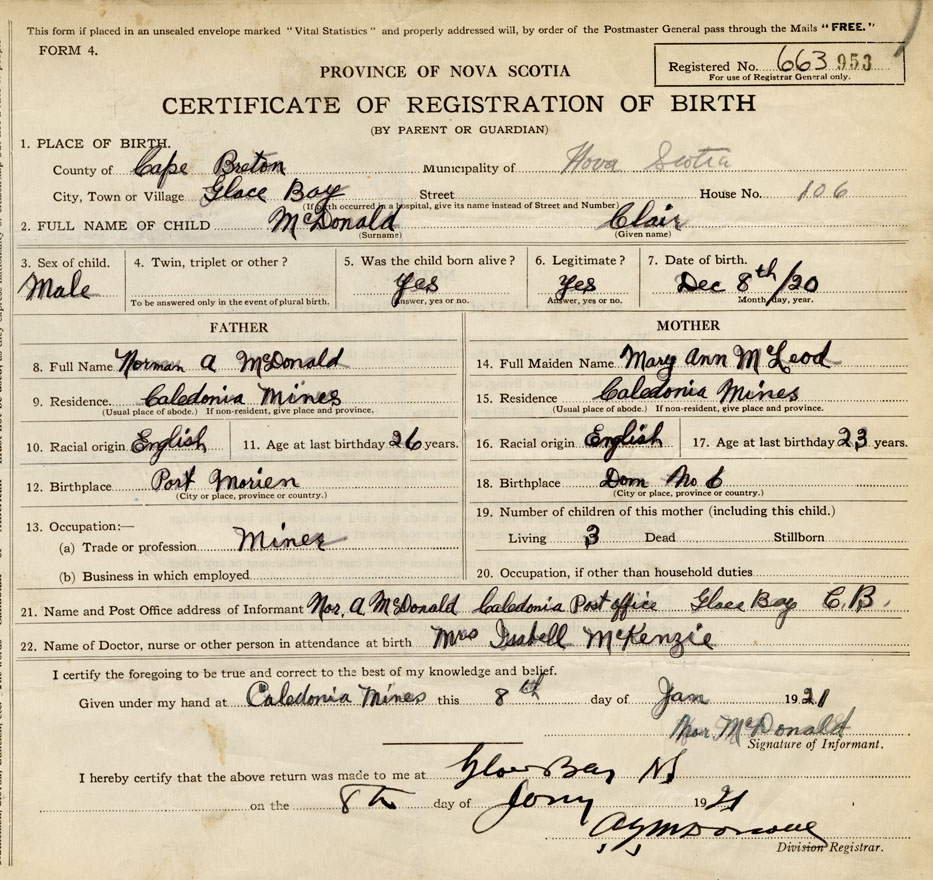 This form if placed in an unsealed envelope marked "Vital Statistics" and properly addressed will, by order of the Postmaster General pass through the Mails "FREE."
FORM 4.
Registered No. 663 953
For use of Registrar General only.
PROVINCE OF NOVA SCOTIA
CERTIFICATE OF REGISTRATION OF BIRTH
(BY PARENT OR GUARDIAN)
1. PLACE OF BIRTH.
County of Cape Breton Municipality of Nova Scotia
City, Town or Village Glace Bay Street House No. 106
(If birth occurred in a hospital, give its name instead of Street and Number)
2. FULL NAME OF CHILD McDonald Clair
(Surname) (Given name)
3. Sex of child. 4. Twin, triplet or other? 5. Was the child born alive? 6. Legitimate? 7. Date of birth.
Male Yes Yes Dec 8th/20
To be answered only in the event of plural birth. Answer, yes or no. Answer, yes or no. Month, day, year.
FATHER MOTHER
8. Full Name Norman A McDonald 14. Full Maiden Name Mary Ann McLeod
9. Residence. Caledonia Mines 15. Residence Caledonia Mines
(Usual place of abode.) If non-resident, give place and province. (Usual place of abode.) If non-resident, give place and province.
10. Racial origin English 11. Age at last birthday 26 years. 16. Racial origin English 17. Age at last birthday 23 years.
12. Birthplace Port Morien 18. Birthplace Dom No 6
(City or place, province or country.) (City or place, province or country.)
13. Occupation:— 19. Number of children of this mother (including this child.)
(a) Trade or profession Miner Living 3 Dead Stillborn
(b) Business in which employed 20. Occupation, if other than household duties
21. Name and Post Office address of Informant Nor. A. McDonald Caledonia Post office Glace Bay C.B.
22. Name of Doctor, nurse or other person in attendance at birth Mrs Isabell McKenzie
I certify the foregoing to be true and correct to the best of my knowledge and belief.
Given under my hand at Caledonia Mines this 8th day of Jan 1921
Nor. McDonald
Signature of Informant.
I hereby certify that the above return was made to me at Glace Bay NS
on the 8th day of Jany 1921
Division Registrar.